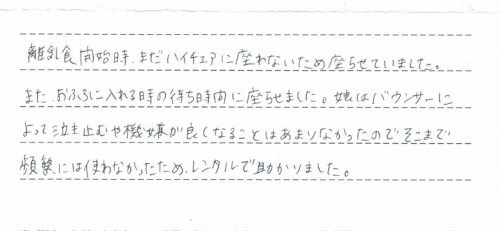 離乳食開始時、まだハイチェアに座れないため座らせていました。
また、おふろに入れる時の待ち時間に座らせました。娘はバウンサーに
よって泣き止むや機嫌が良くなることはあまりなかったのでそこまで
頻繁には使わなかったため、レンタルで助かりました。